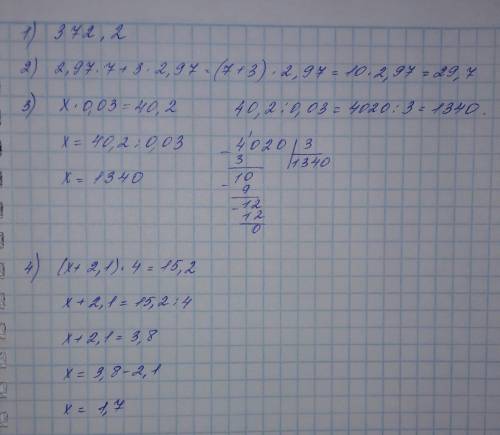 1) 372,2
2) 2,97·7+3·2,97=(7+3)·2,97=10·2,97=29,7
3) x·0,03=40,2 40,2:0,03=4020:3=1340.
x=40,2:0,03
x=1340
-4020|3
3 1340
-10
9
-12
12
0
4) (x+2,1)·4=15,2
x+2,1=15,2:4
x+2,1=3,8
x=3,8-2,1
x=1,7